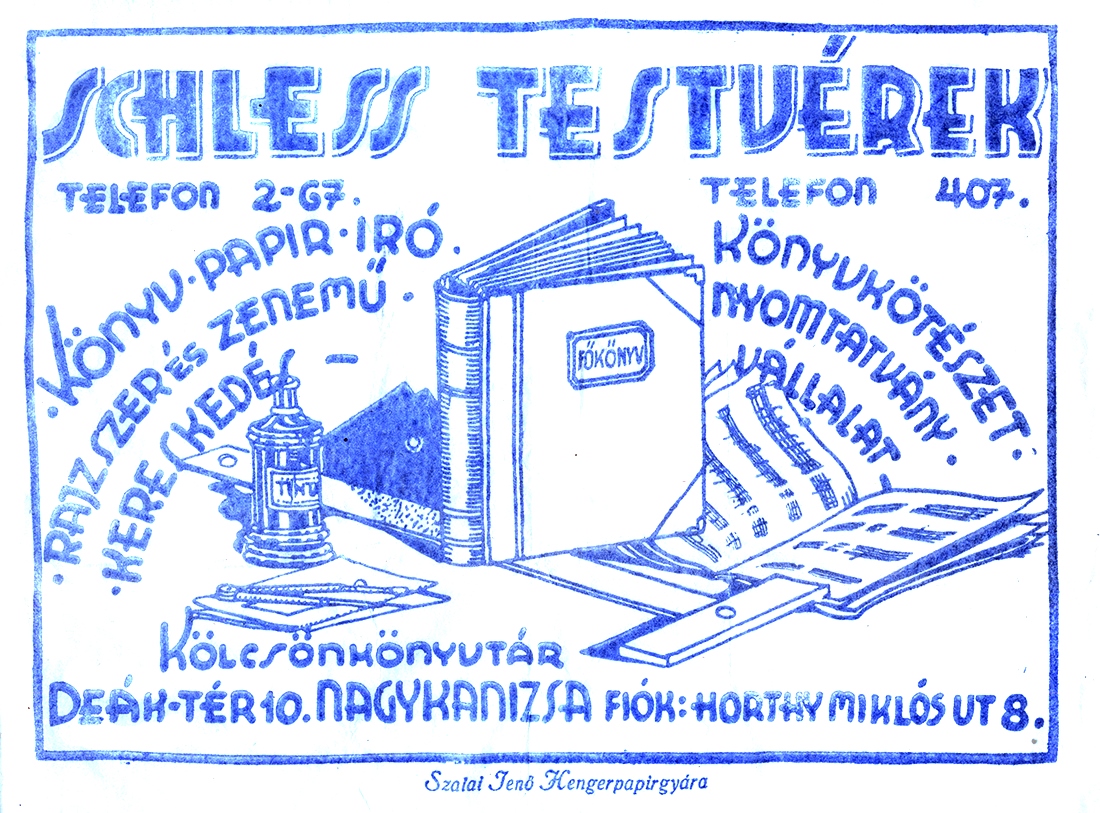 SCHLESS TESTVÉREK
TELEFON 2-67.
TELEFON 407.
·KÖNYV·PAPIR·IRÓ.
·RAJZSZER ÉS ZENEMŰ·
·KERESKEDÉS–
KÖNYVKÖTÉSZET·
NYOMTATVÁNY·
VÁLLALAT–
FŐKÖNYV
TINTA
KÖLCSÖNKÖNYVTÁR
DEÁK-TÉR 10. NAGYKANIZSA FIÓK: HORTHY MIKLÓS UT 8.
Szalai Jenő Hengerpapirgyára